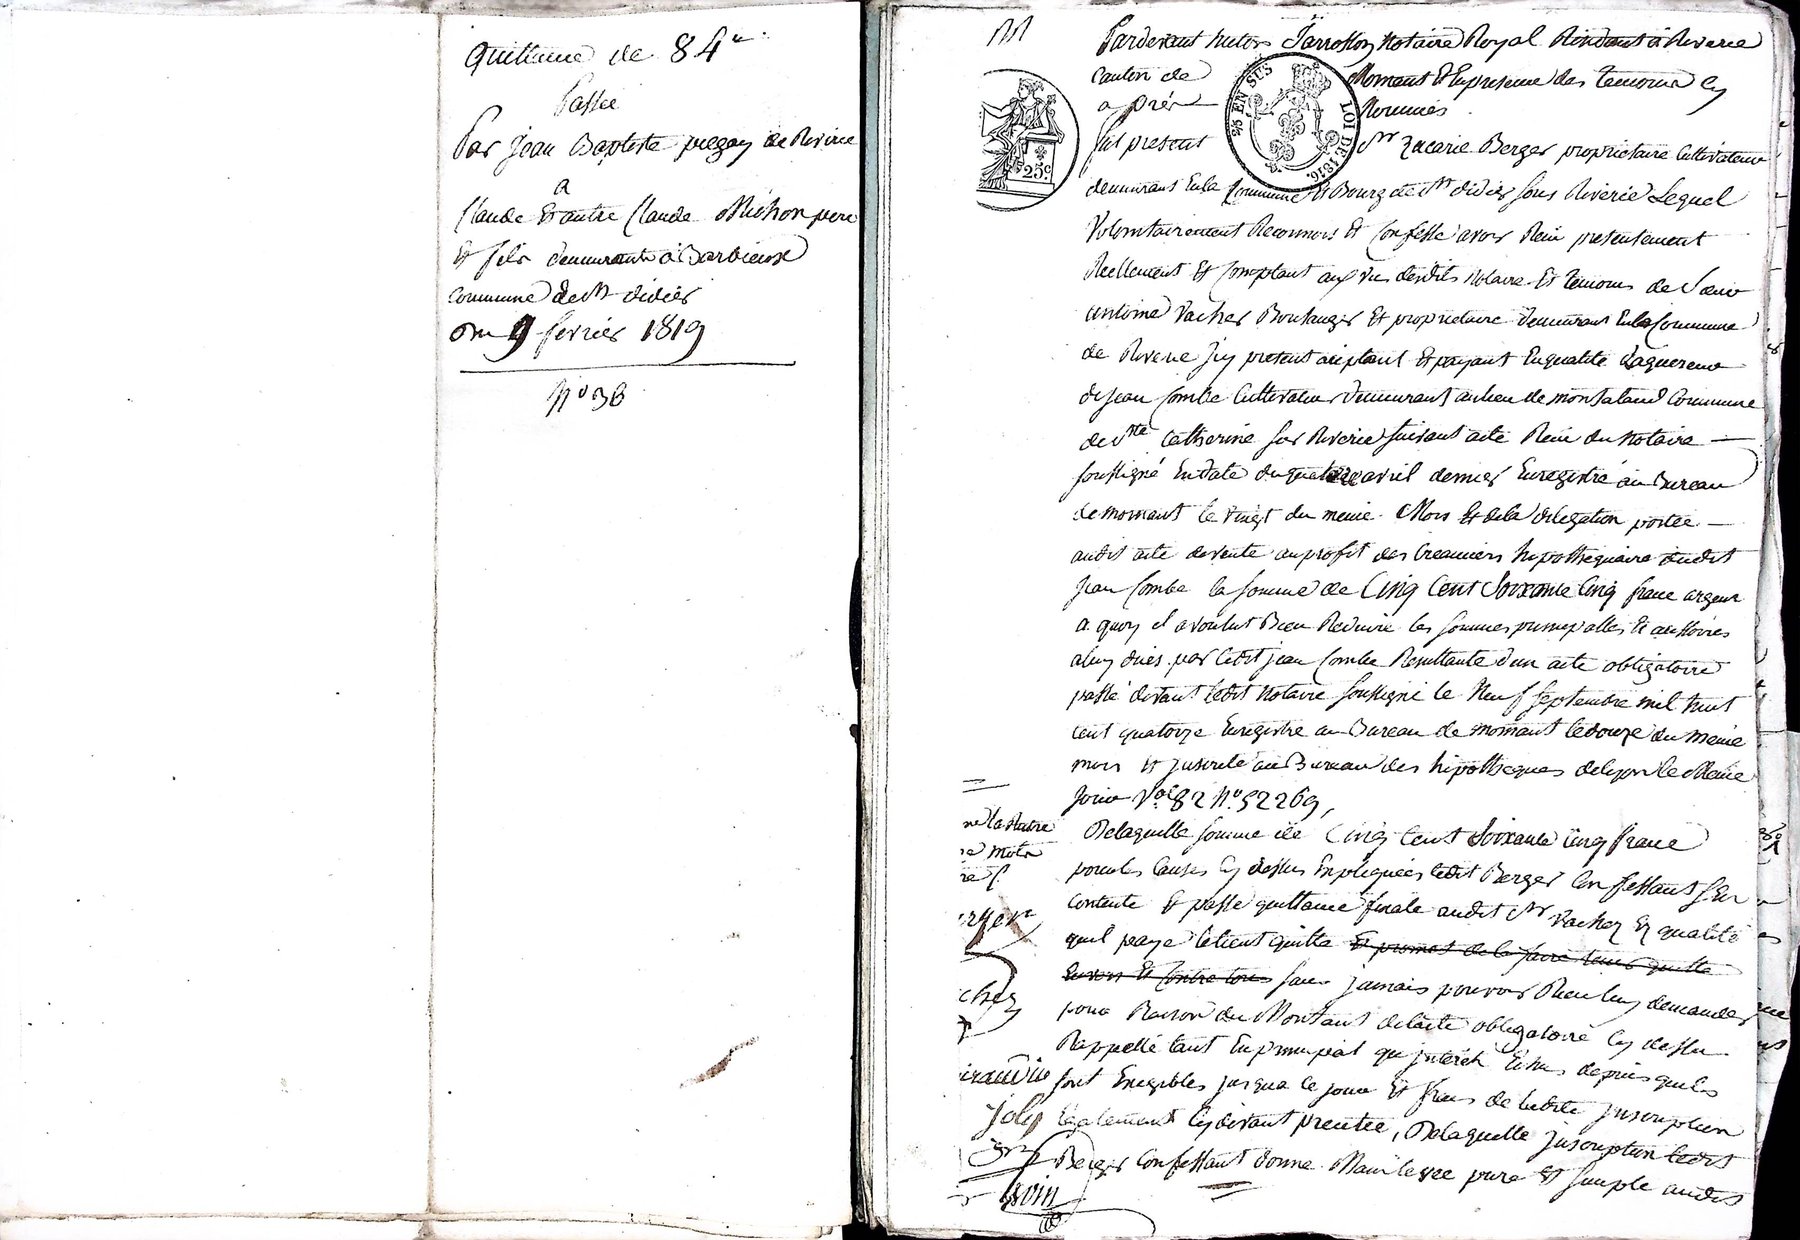 Quittance de 84 #
Passée
Par Jean Baptiste de Riverie
a
Claude et autre Claude Michon pere
et fils demeurants a Barbieux
commune de St didier
Du 9 fevrier 1819
N° 36
Pardevant Notaire Royal Résidant à Riverie
canton de Mornant et En presence des temoins cy
après Nommés
fut present Sr Zacarie Berger proprietaire Cultivateur
demeurant En la Commune et Bourg de St didier sous Riverie Lequel
Volontairement Reconnois et Confesse avoir Reçu presentement
Reellement et Comptant aux vu desdits Notaire et temoins de Sieur
antoine Vacher Boulanger et proprietaire demeurant En la Commune
de Riverie Icy present acceptant et payant En qualité d'aquereur
de Jean Combe Cultivateur demeurant au lieu de Commune
de Ste Catherine sur Riverie suivant acte Reçu du Notaire
soussigné En date du avril dernier Enregistré au Bureau
de mornant le vingt du meme Mois et de la delegation portée
audit acte de vente au profit des Creanciers hipothequaire dudit
Jean Combe la somme de Cinq Cent Soixante Cinq franc argent
a quoy il a voulut Bien Reduire les sommes principalles et
a luy dues par ledit jean Combe Resultante d'un acte obligatoire
passé devant ledit Notaire soussigné le Neuf septembre mil huit
cent quatorze Enregistré au Bureau de mornant le douze du meme
mois et Inscrite au Bureau des hipotheques de Lyon le Meme
Jour Vol 82 N° 52269,
De laquelle somme de Cinq Cent Soixante Cinq franc
pour les Causes cy dessus Expliquées ledit Berger Confessant s'En
contente et passe quittance finale audit Sr Vacher En qualité
quil paye le tient quitte et promet de le faire tenir quitte
Envers et Contre tous sans jamais pouvoir Rien luy demander
pour Raison du Montant de l'acte obligatoire cy dessus
Rappellé tant En principal qu'interet Echus depuis quils
sont Exigibles jusqua ce jour et frais de ladite Inscription
Egalement cy devant precitée, De laquelle Inscription ledit
Berger Confessant donne Main levée pure et simple audit
25c
25 EN SUS
LOI DE 1816.
joly